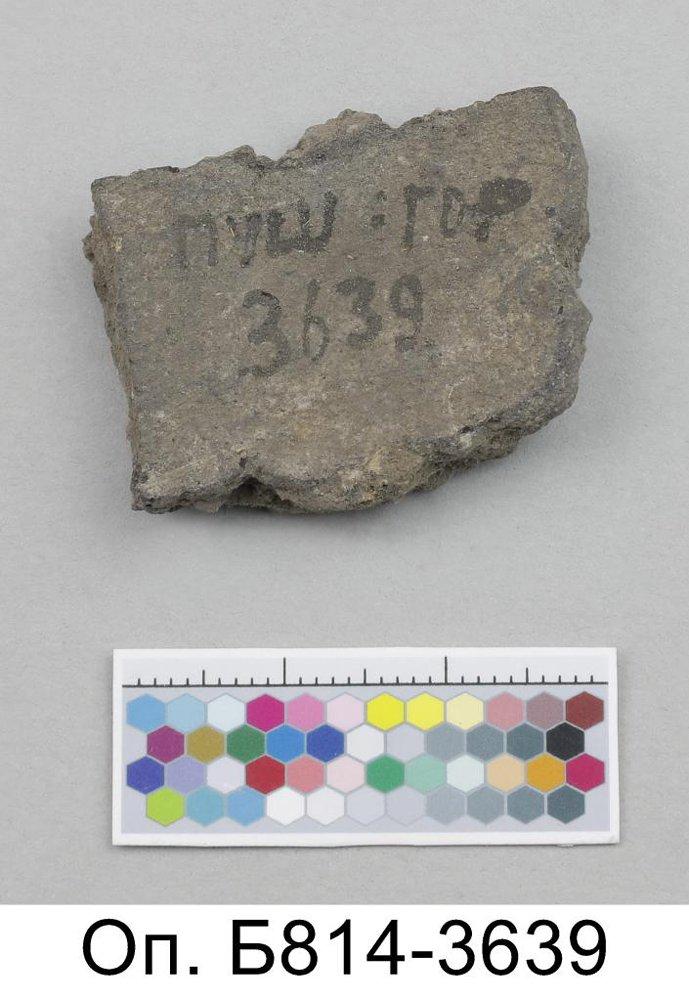 ПУШ:ГОР
3639
Оп. Б814-3639